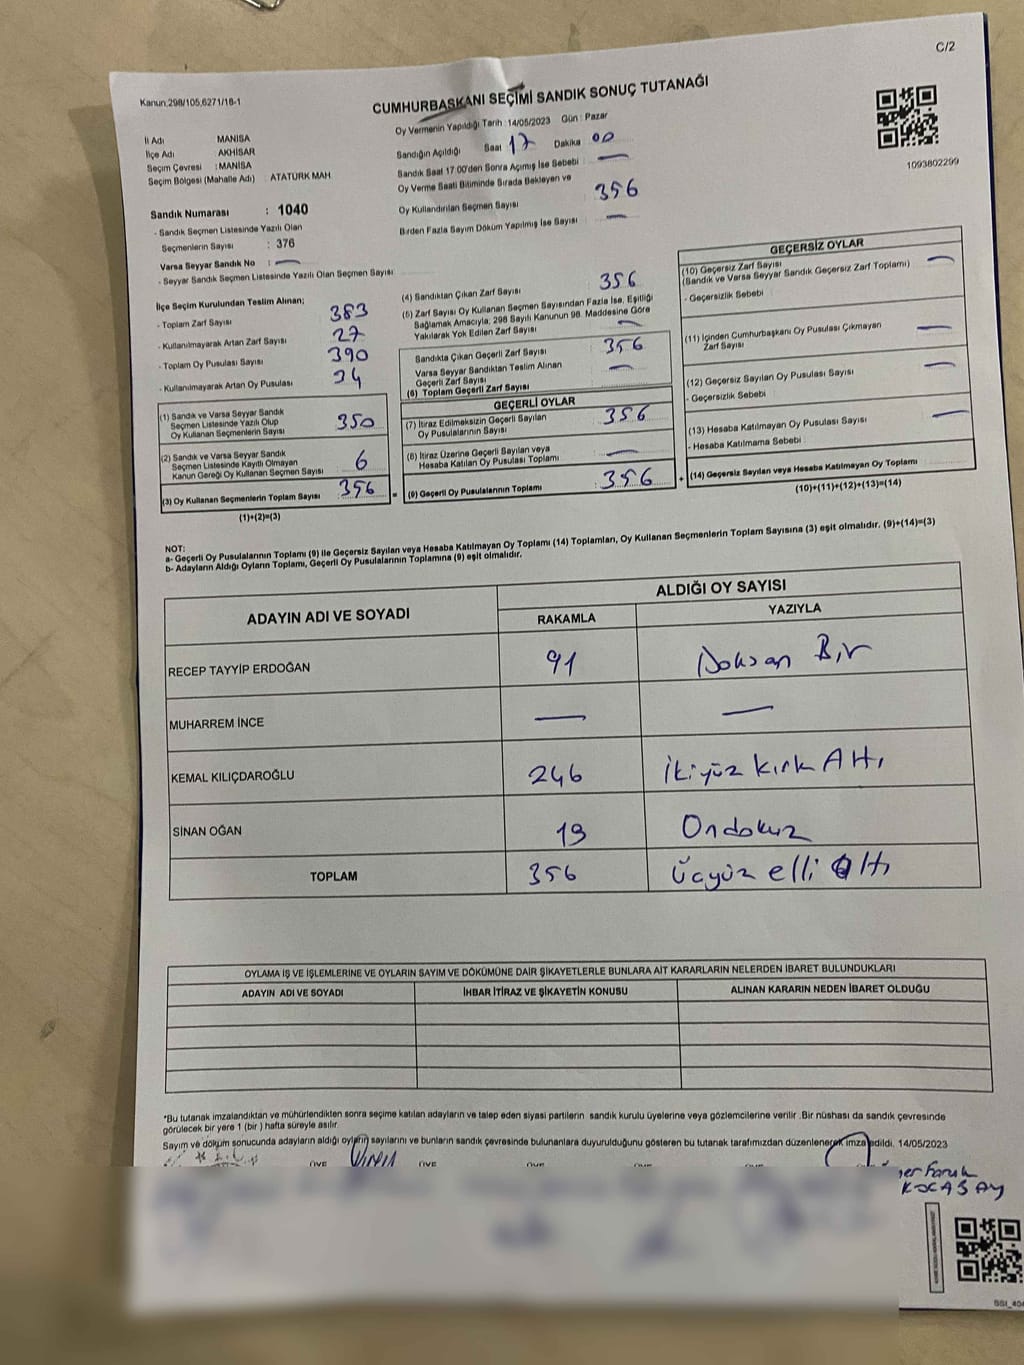 C/2
Kanun,298/105,6271/18-1
CUMHURBAŞKANI SEÇİMİ SANDIK SONUÇ TUTANAĞI
Oy Vermenin Yapıldığı Tarih : 14/05/2023 Gün : Pazar
İl Adı MANİSA
İlçe Adı AKHİSAR
Seçim Çevresi : MANİSA
Seçim Bölgesi (Mahalle Adı) : ATATÜRK MAH.
Sandık Numarası : 1040
- Sandık Seçmen Listesinde Yazılı Olan
Seçmenlerin Sayısı : 376
Varsa Seyyar Sandık No : —
- Seyyar Sandık Seçmen Listesinde Yazılı Olan Seçmen Sayısı
Sandığın Açıldığı Saat 17 Dakika 00
Sandık Saat 17:00'den Sonra Açımış İse Sebebi —
Oy Verme Saati Bitiminde Sırada Bekleyen ve
Oy Kullandırılan Seçmen Sayısı 356
Birden Fazla Sayım Döküm Yapılmış İse Sayısı —
1093802299
İlçe Seçim Kurulundan Teslim Alınan;
- Toplam Zarf Sayısı 383
- Kullanılmayarak Artan Zarf Sayısı 27
- Toplam Oy Pusulası Sayısı 390
- Kullanılmayarak Artan Oy Pusulası 34
(1) Sandık ve Varsa Seyyar Sandık
Seçmen Listesinde Yazılı Olup
Oy Kullanan Seçmenlerin Sayısı 350
(2) Sandık ve Varsa Seyyar Sandık
Seçmen Listesinde Kayıtlı Olmayan
Kanun Gereği Oy Kullanan Seçmen Sayısı 6
(3) Oy Kullanan Seçmenlerin Toplam Sayısı 356 =
(1)+(2)=(3)
(4) Sandıktan Çıkan Zarf Sayısı 356
(5) Zarf Sayısı Oy Kullanan Seçmen Sayısından Fazla İse, Eşitliği
Sağlamak Amacıyla, 298 Sayılı Kanunun 98. Maddesine Göre
Yakılarak Yok Edilen Zarf Sayısı —
Sandıkta Çıkan Geçerli Zarf Sayısı 356
Varsa Seyyar Sandıktan Teslim Alınan
Geçerli Zarf Sayısı —
(6) Toplam Geçerli Zarf Sayısı
GEÇERLİ OYLAR
(7) İtiraz Edilmeksizin Geçerli Sayılan
Oy Pusulalarının Sayısı 356
(8) İtiraz Üzerine Geçerli Sayılan veya
Hesaba Katılan Oy Pusulası Toplamı —
(9) Geçerli Oy Pusulalarının Toplamı 356 +
GEÇERSİZ OYLAR
(10) Geçersiz Zarf Sayısı
(Sandık ve Varsa Seyyar Sandık Geçersiz Zarf Toplamı) —
- Geçersizlik Sebebi
(11) İçinden Cumhurbaşkanı Oy Pusulası Çıkmayan
Zarf Sayısı —
(12) Geçersiz Sayılan Oy Pusulası Sayısı —
- Geçersizlik Sebebi
(13) Hesaba Katılmayan Oy Pusulası Sayısı —
- Hesaba Katılmama Sebebi
(14) Geçersiz Sayılan veya Hesaba Katılmayan Oy Toplamı
(10)+(11)+(12)+(13)=(14)
NOT:
a- Geçerli Oy Pusulalarının Toplamı (9) ile Geçersiz Sayılan veya Hesaba Katılmayan Oy Toplamı (14) Toplamları, Oy Kullanan Seçmenlerin Toplam Sayısına (3) eşit olmalıdır. (9)+(14)=(3)
b- Adayların Aldığı Oyların Toplamı, Geçerli Oy Pusulalarının Toplamına (9) eşit olmalıdır.
ADAYIN ADI VE SOYADI ALDIĞI OY SAYISI
RAKAMLA YAZIYLA
RECEP TAYYİP ERDOĞAN 91 Doksan Bir
MUHARREM İNCE — —
KEMAL KILIÇDAROĞLU 246 İkiyüz kırk Altı
SİNAN OĞAN 19 Ondokuz
TOPLAM 356 Üçyüz elli altı
OYLAMA İŞ VE İŞLEMLERİNE VE OYLARIN SAYIM VE DÖKÜMÜNE DAİR ŞİKAYETLERLE BUNLARA AİT KARARLARIN NELERDEN İBARET BULUNDUKLARI
ADAYIN ADI VE SOYADI İHBAR İTİRAZ VE ŞİKAYETİN KONUSU ALINAN KARARIN NEDEN İBARET OLDUĞU
*Bu tutanak imzalandıktan ve mühürlendikten sonra seçime katılan adayların ve talep eden siyasi partilerin sandık kurulu üyelerine veya gözlemcilerine verilir .Bir nüshası da sandık çevresinde
görülecek bir yere 1 (bir ) hafta süreyle asılır.
Sayım ve döküm sonucunda adayların aldığı oyların sayılarını ve bunların sandık çevresinde bulunanlara duyurulduğunu gösteren bu tutanak tarafımızdan düzenlenerek imza edildi. 14/05/2023
Faruk
KOCABAY